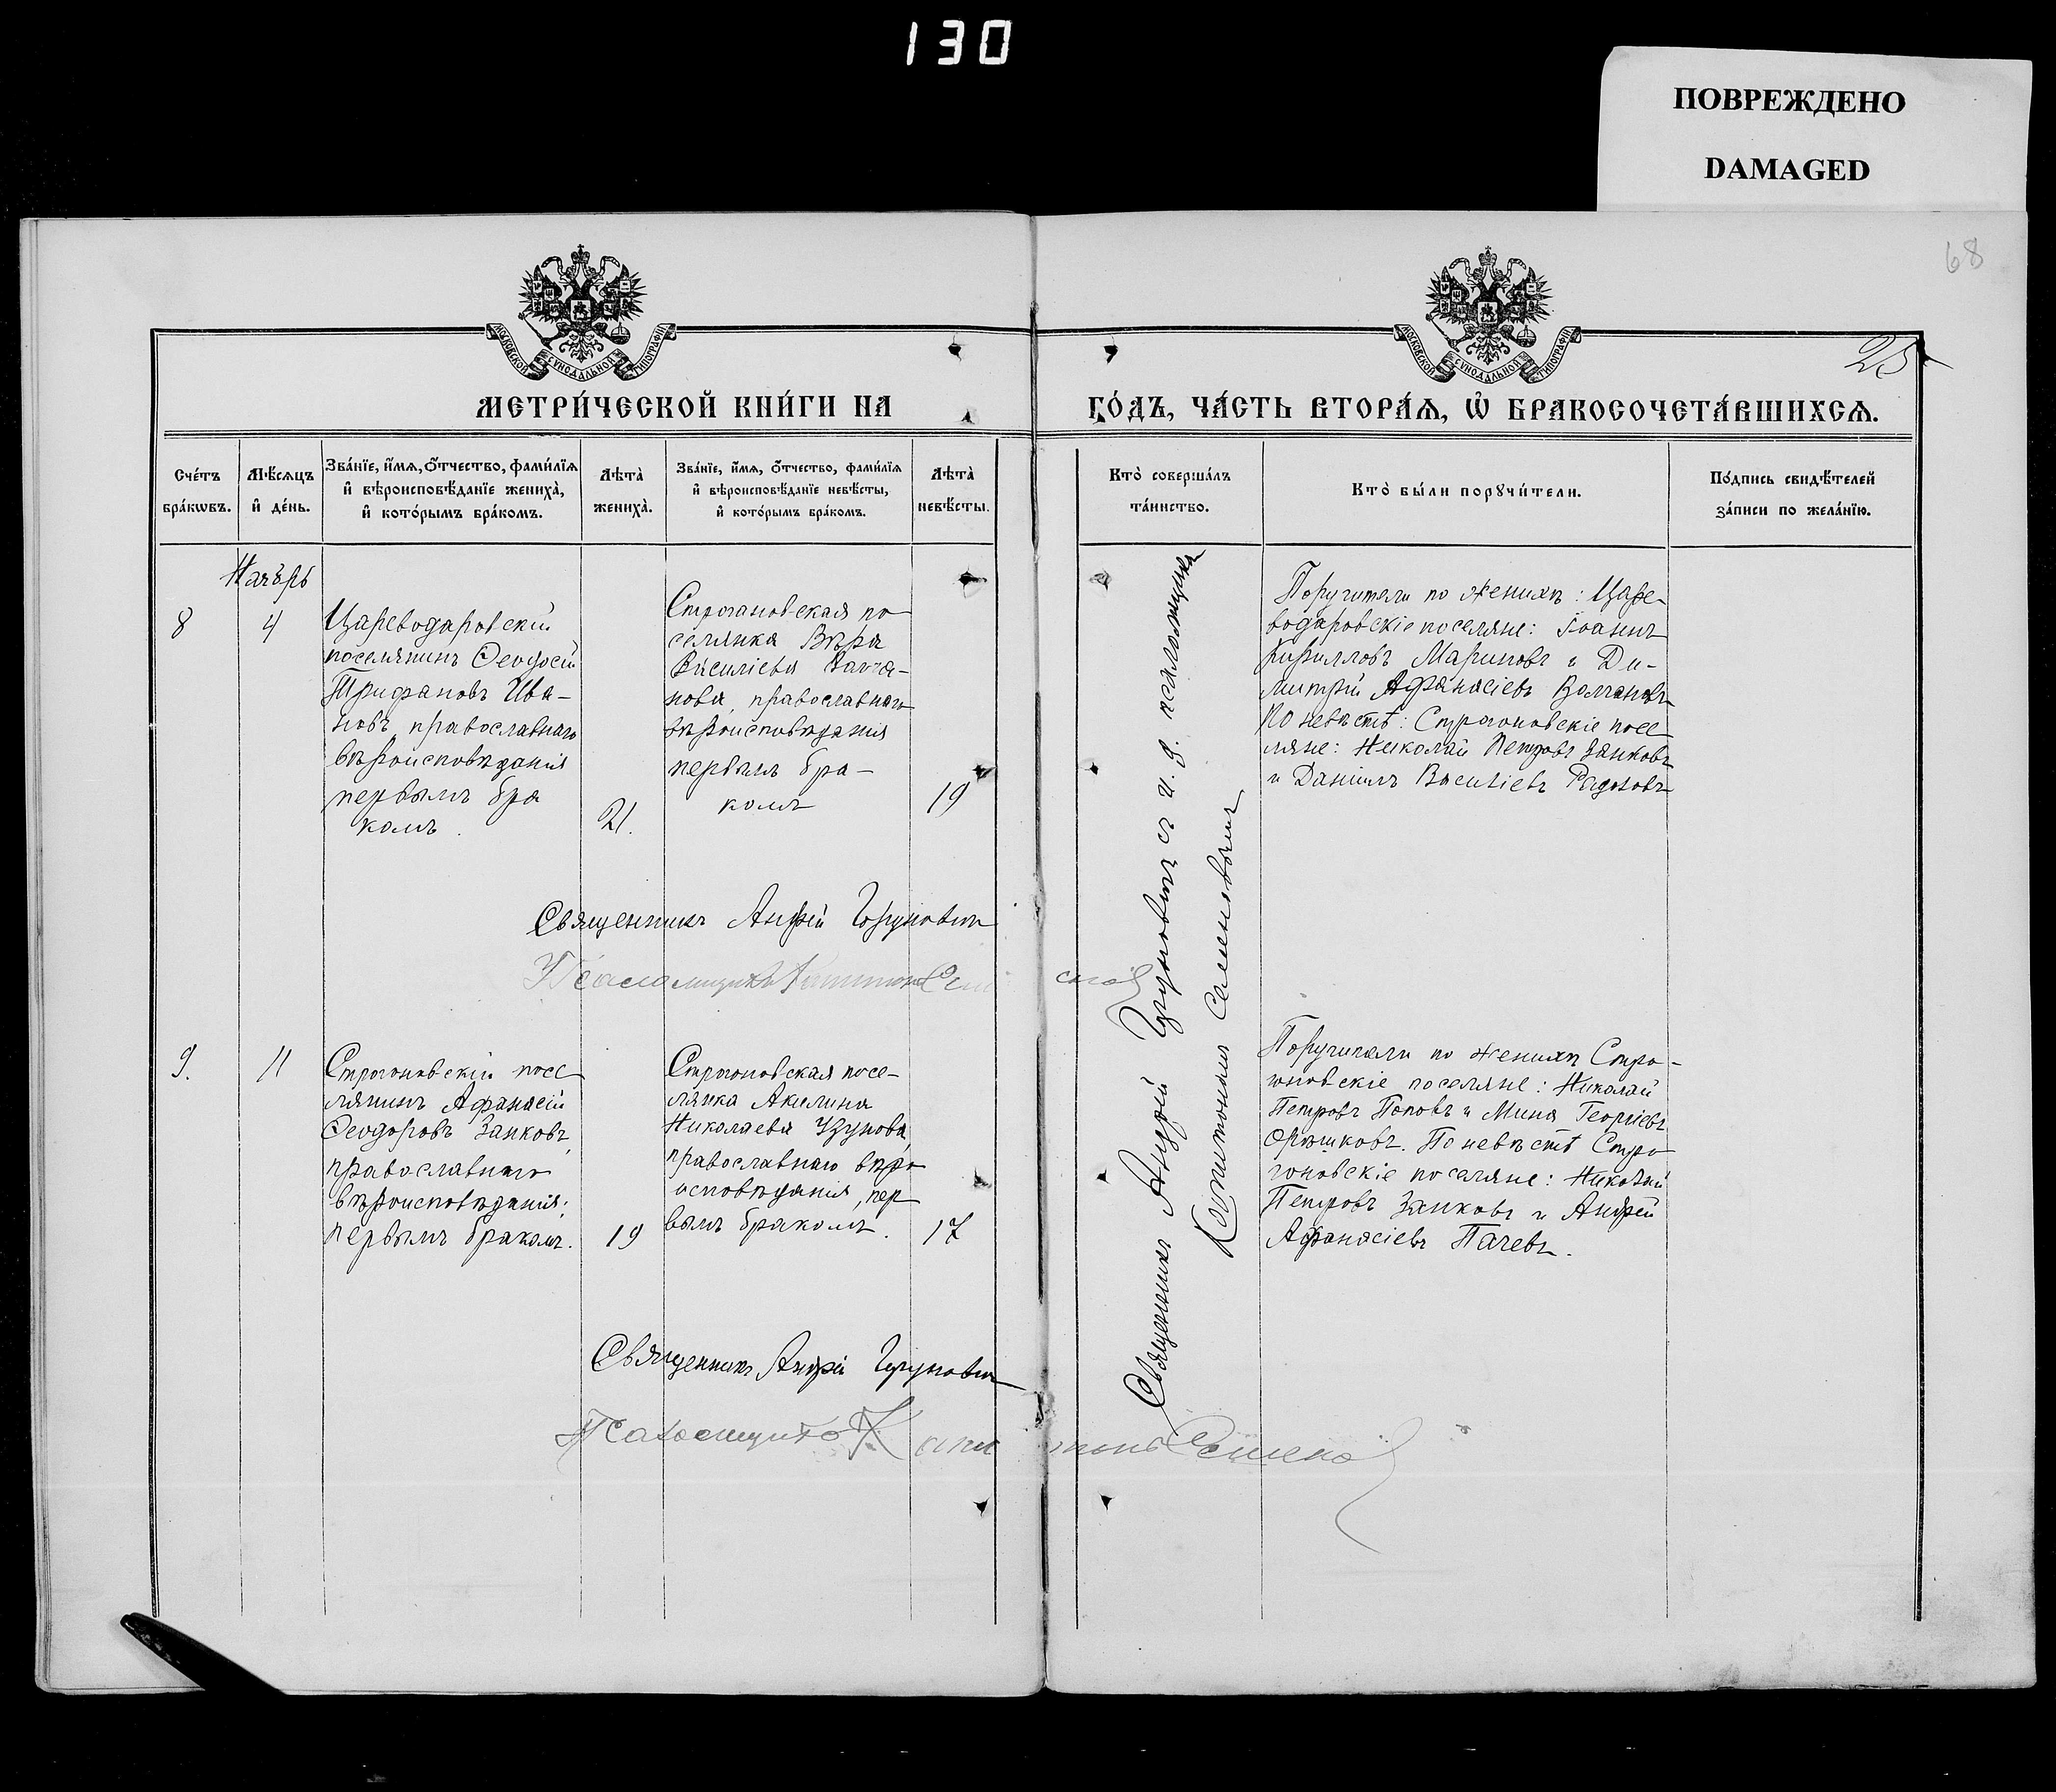 130
ПОВРЕЖДЕНО
DAMAGED
68
25
МОСКОВСКОЙ СѴНОДАЛЬНОЙ ТИПОГРАФІИ
МОСКОВСКОЙ СѴНОДАЛЬНОЙ ТИПОГРАФІИ
МЕТРИ́ЧЕСКОЙ КНИ́ГИ НА
ГО́ДЪ, ЧА́СТЬ ВТОРА́Я, Ѡ҆ БРАКОСОЧЕТА́ВШИХСѦ.
Сче́тъ
бра́кѡвъ.
Мѣ́сѧцъ
и҆ де́нь.
Зва́нїе, и҆́мѧ, ѻ҆́тчество, фами́лїѧ
и҆ вѣроисповѣ́данїе жениха̀,
и҆ кото́рымъ бра́комъ.
Лѣта̀
жениха̀.
Зва́нїе, и҆́мѧ, ѻ҆́тчество, фами́лїѧ
и҆ вѣроисповѣ́данїе невѣ́сты,
и҆ кото́рымъ бра́комъ.
Лѣта̀
невѣ́сты.
Кто̀ соверша́лъ
та́инство.
Кто̀ бы́ли порꙋчи́тели.
По́дпись свидѣ́телей
за́писи по жела́нїю.
8
4
Цареводаровскій
поселянинъ Ѳеодосій
Трифановъ Ива-
новъ, православнаго
вѣроисповѣданія
первымъ бра
комъ.
21.
Строгановская по
селянка Вѣра
Василіева
нова, православнаго
вѣроисповѣданія
первымъ бра-
комъ
19
Священникъ Андрей
Псаломщикъ
Священникъ Андрей съ и. д. псаломщика
Капитономъ Семеновымъ
Поручители по женихѣ: Царе-
водаровскіе поселяне: Іоаннъ
Кирилловъ Мариновъ и Ди-
митрій Афанасіевъ Волчановъ
По невѣстѣ: Строгоновскіе посе
ляне: Николай Петровъ Занковъ
и Даніилъ Василіевъ Радовъ
9.
11
Строгоновскій посе
лянинъ Афанасій
Ѳеодоровъ Занковъ,
православнаго
вѣроисповѣданія;
первымъ бракомъ.
19
Строгоновская посе-
лянка Акилина
Николаева Узунова,
православнаго вѣро
исповѣданія, пер
вымъ бракомъ.
17
Поручители по женихѣ Стро-
гоновскіе поселяне: Николай
Петровъ Поповъ и Мина Георгіевъ
Орѣшковъ. По невѣстѣ Стро
гоновскіе поселяне: Николай
Петровъ Занковъ и Андрей
Афанасіевъ Пачевъ.
Священникъ Андрей
Псаломщикъ Капитонъ Семенов